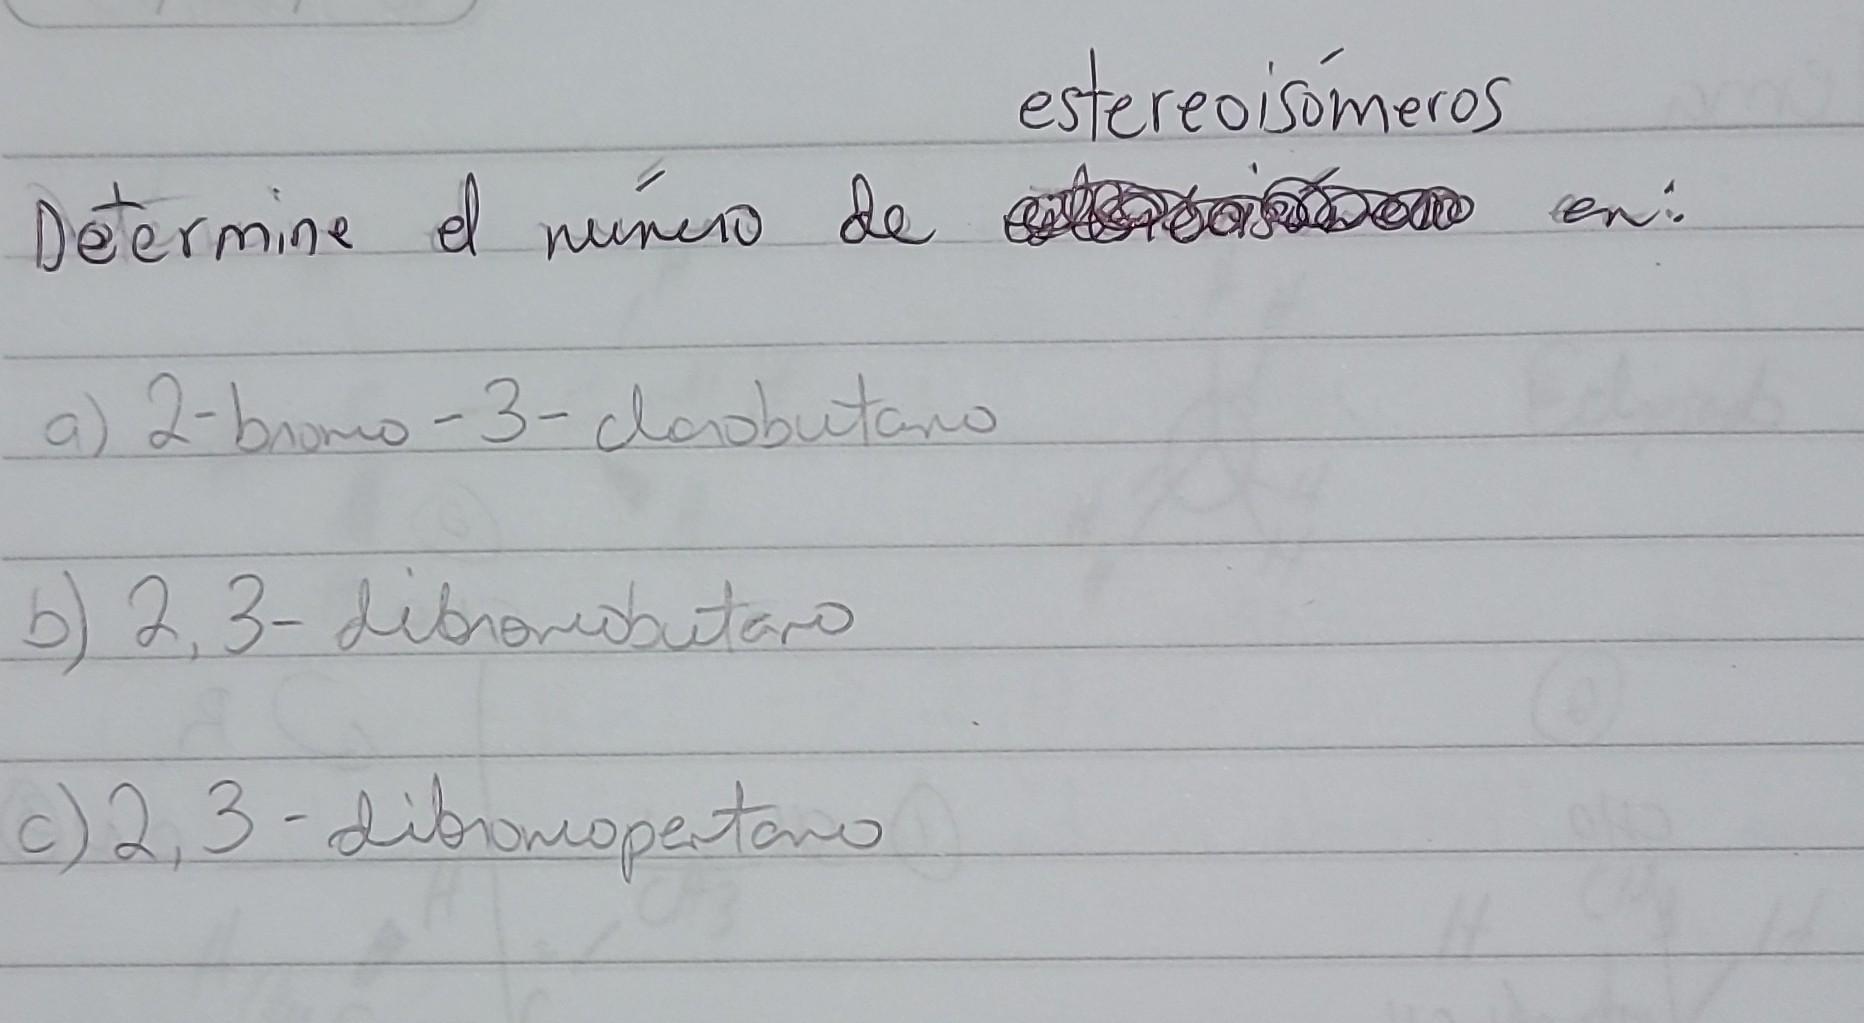 estereoisómeros
Determine el número de en:
a) 2-bromo-3-clorobutano
b) 2,3-dibromobutano
c) 2,3-dibromopentano